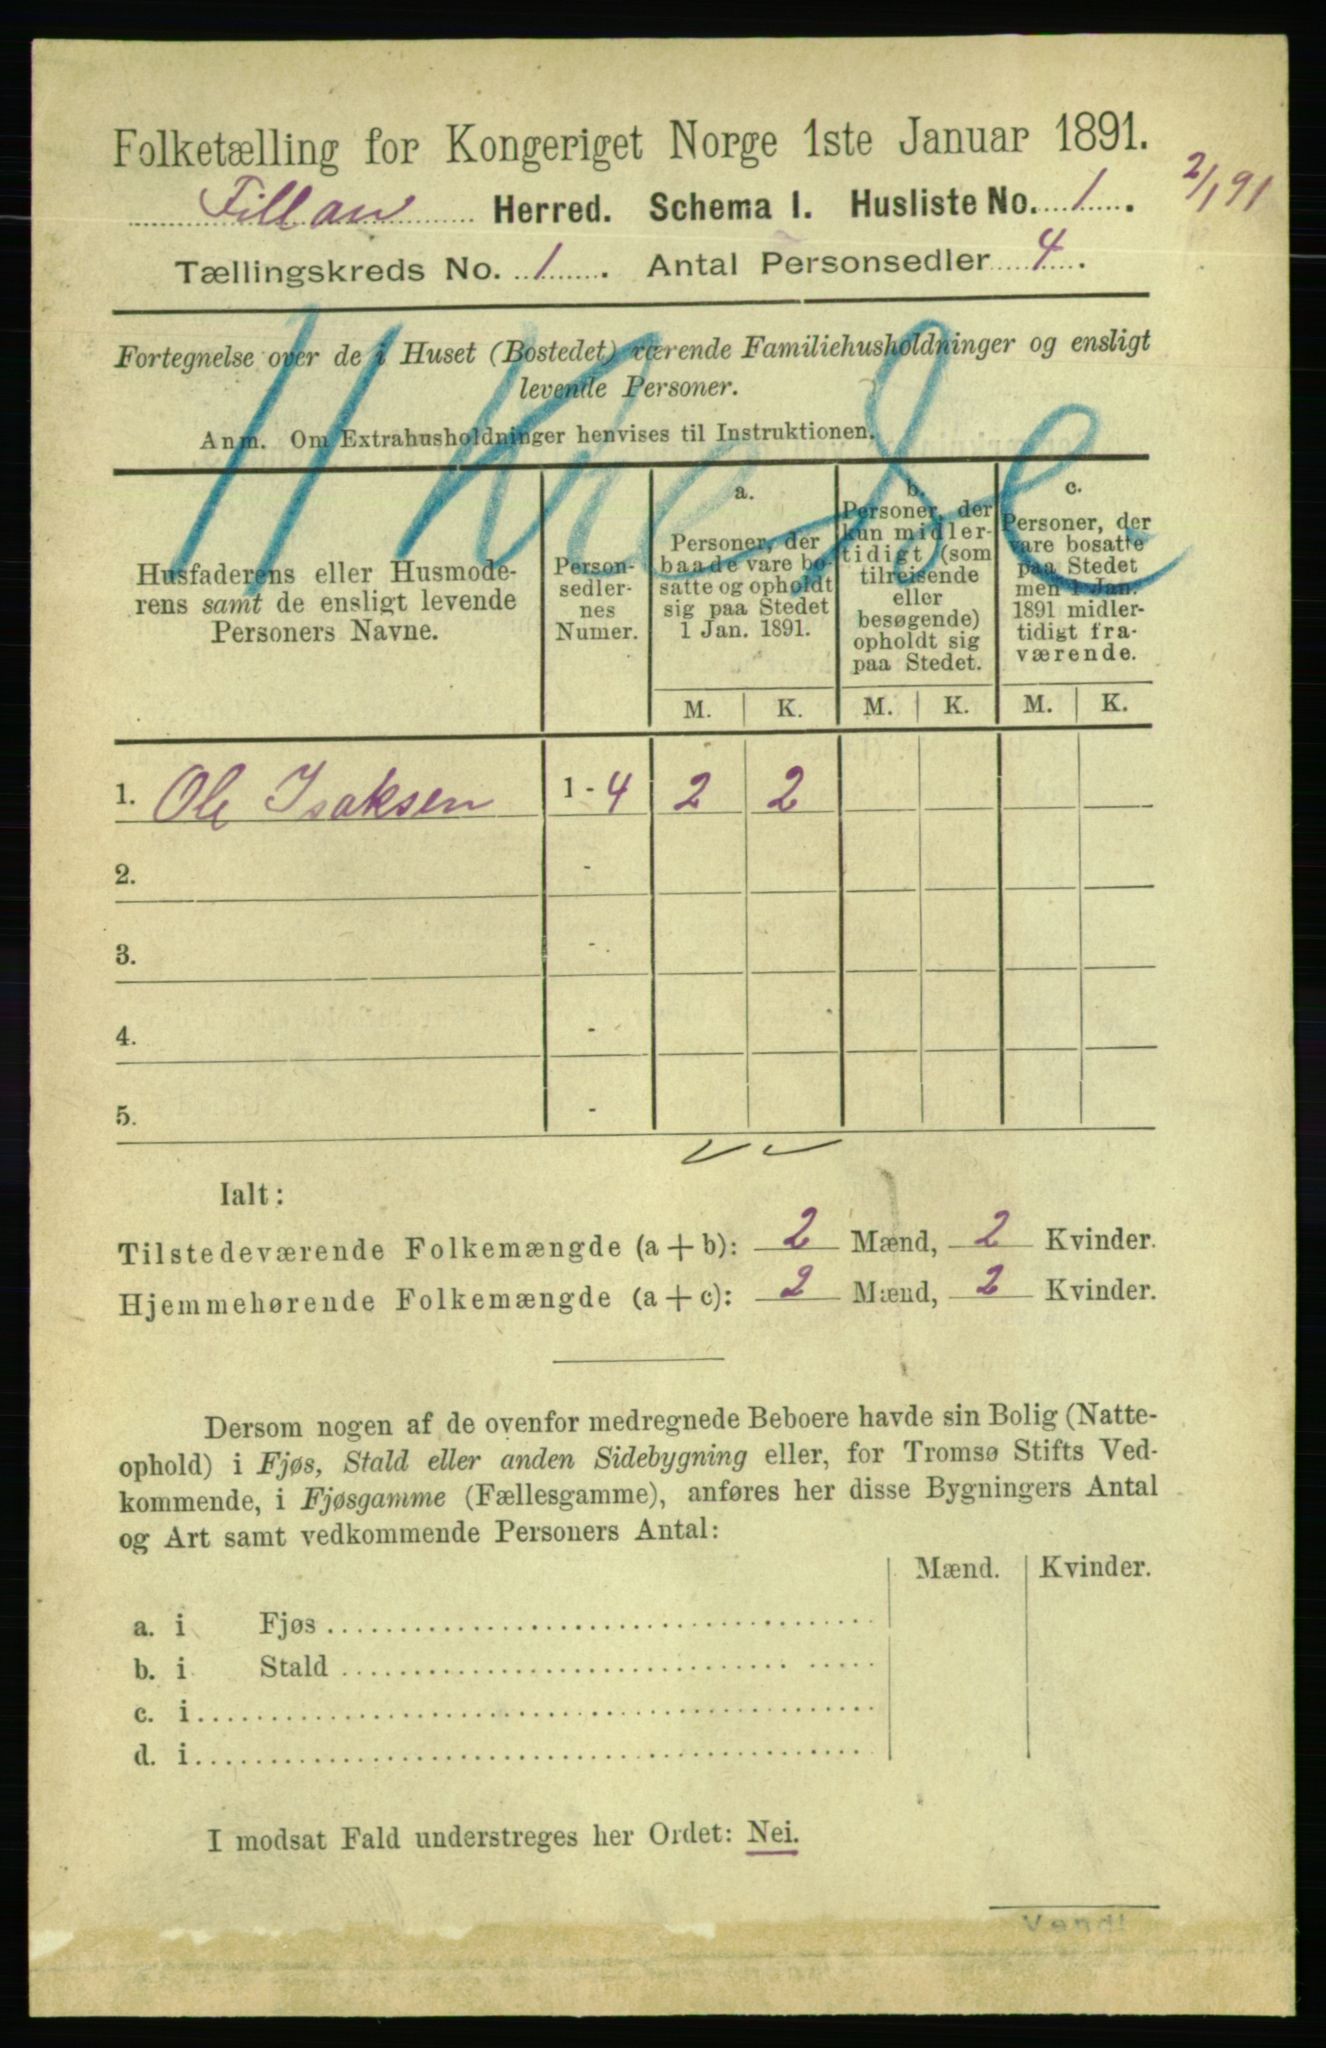 Folketælling for Kongeriget Norge 1ste Januar 1891.
2/1 91
Fillan Herred. Schema 1. Husliste No. 1.
Tællingskreds No. 1. Antal Personsedler 4.
Fortegnelse over de i Huset (Bostedet) værende Familiehusholdninger og ensligt
levende Personer.
Anm. Om Extrahusholdninger henvises til Instruktionen.
Husfaderens eller Husmode-
rens samt de ensligt levende
Personers Navne.
Person-
sedler-
nes
Numer.
a.
Personer, der
baade vare bo-
satte og opholdt
sig paa Stedet
1 Jan. 1891.
b.
Personer, der
kun midler-
tidigt (som
tilreisende
eller
besøgende)
opholdt sig
paa Stedet.
c.
Personer, der
vare bosatte
paa Stedet
men 1 Jan.
1891 midler-
tidigt fra-
værende.
M. K. M. K. M. K.
1. Ole Isaksen 1 - 4 2 2
2. -
3. -
4. -
5. -
Ialt:
Tilstedeværende Folkemængde (a + b): 2 Mænd, 2 Kvinder.
Hjemmehørende Folkemængde (a + c): 2 Mænd, 2 Kvinder.
Dersom nogen af de ovenfor medregnede Beboere havde sin Bolig (Natte-
ophold) i Fjøs, Stald eller anden Sidebygning eller, for Tromsø Stifts Ved-
kommende, i Fjøsgamme (Fællesgamme), anføres her disse Bygningers Antal
og Art samt vedkommende Personers Antal:
Mænd. Kvinder.
a. i Fjøs
b. i Stald
c. i
d. i
I modsat Fald understreges her Ordet: Nei.
Vend!